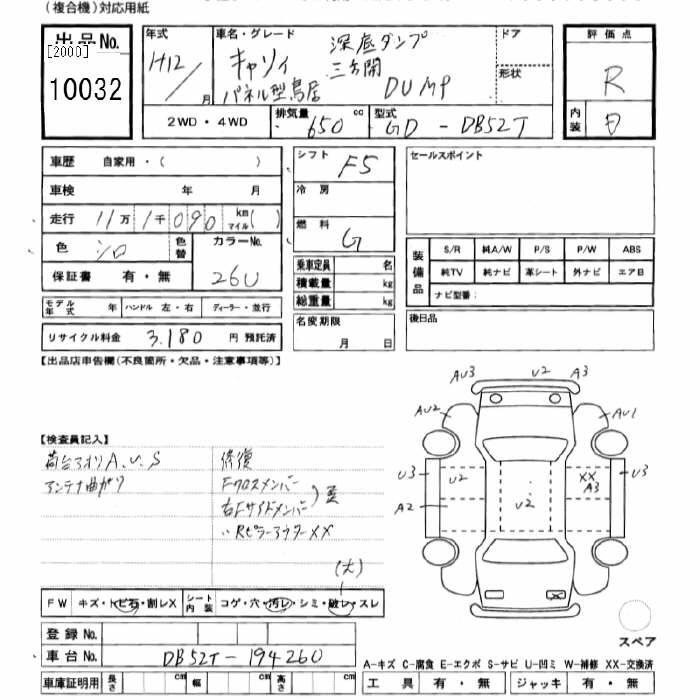 (複合機)対応用紙
出品No.
[2000]
10032
年式
H12/
月
車名・グレード
キャリィ
深底ダンプ
三方開
パネル型鳥居
DUMP
ドア
形状
評価点
R
内装
D
2WD・4WD
排気量
650 cc
型式
GD-DB52T
車歴 自家用・( )
車検 年 月
走行 11万1千090 km マイル( )
色 シロ 色替
カラーNo.
26U
保証書 有・無
モデル年式 年 ハンドル 左・右 ディーラー・並行
リサイクル料金 3,180 円 預託済
シフト F5
冷房
燃料 G
乗車定員 名
積載量 kg
総重量 kg
名変期限
月 日
セールスポイント
装備品
S/R 純A/W P/S P/W ABS
純TV 純ナビ 革シート 外ナビ エアB
ナビ型番:
後日品
【出品店申告欄(不良箇所・欠品・注意事項等)】
【検査員記入】
荷台アオリA、U、S
アンテナ曲がり
修復
Fクロスメンバー
右Fサイドメンバー
〃RピラーアウターXX
(大)
AU3 U2 A3
AU2 AU1
U3 U2 U2 XX A3 U3
A2
FW キズ・トビ石・割レX
シート内装 コゲ・穴・汚レ・シミ・破レ・スレ
登録No.
車台No. DB52T-194260
車庫証明用 長さ cm 幅 cm 高さ cm
スペア
A-キズ C-腐食 E-エクボ S-サビ U-凹ミ W-補修 XX-交換済
工具 有・無 ジャッキ 有・無